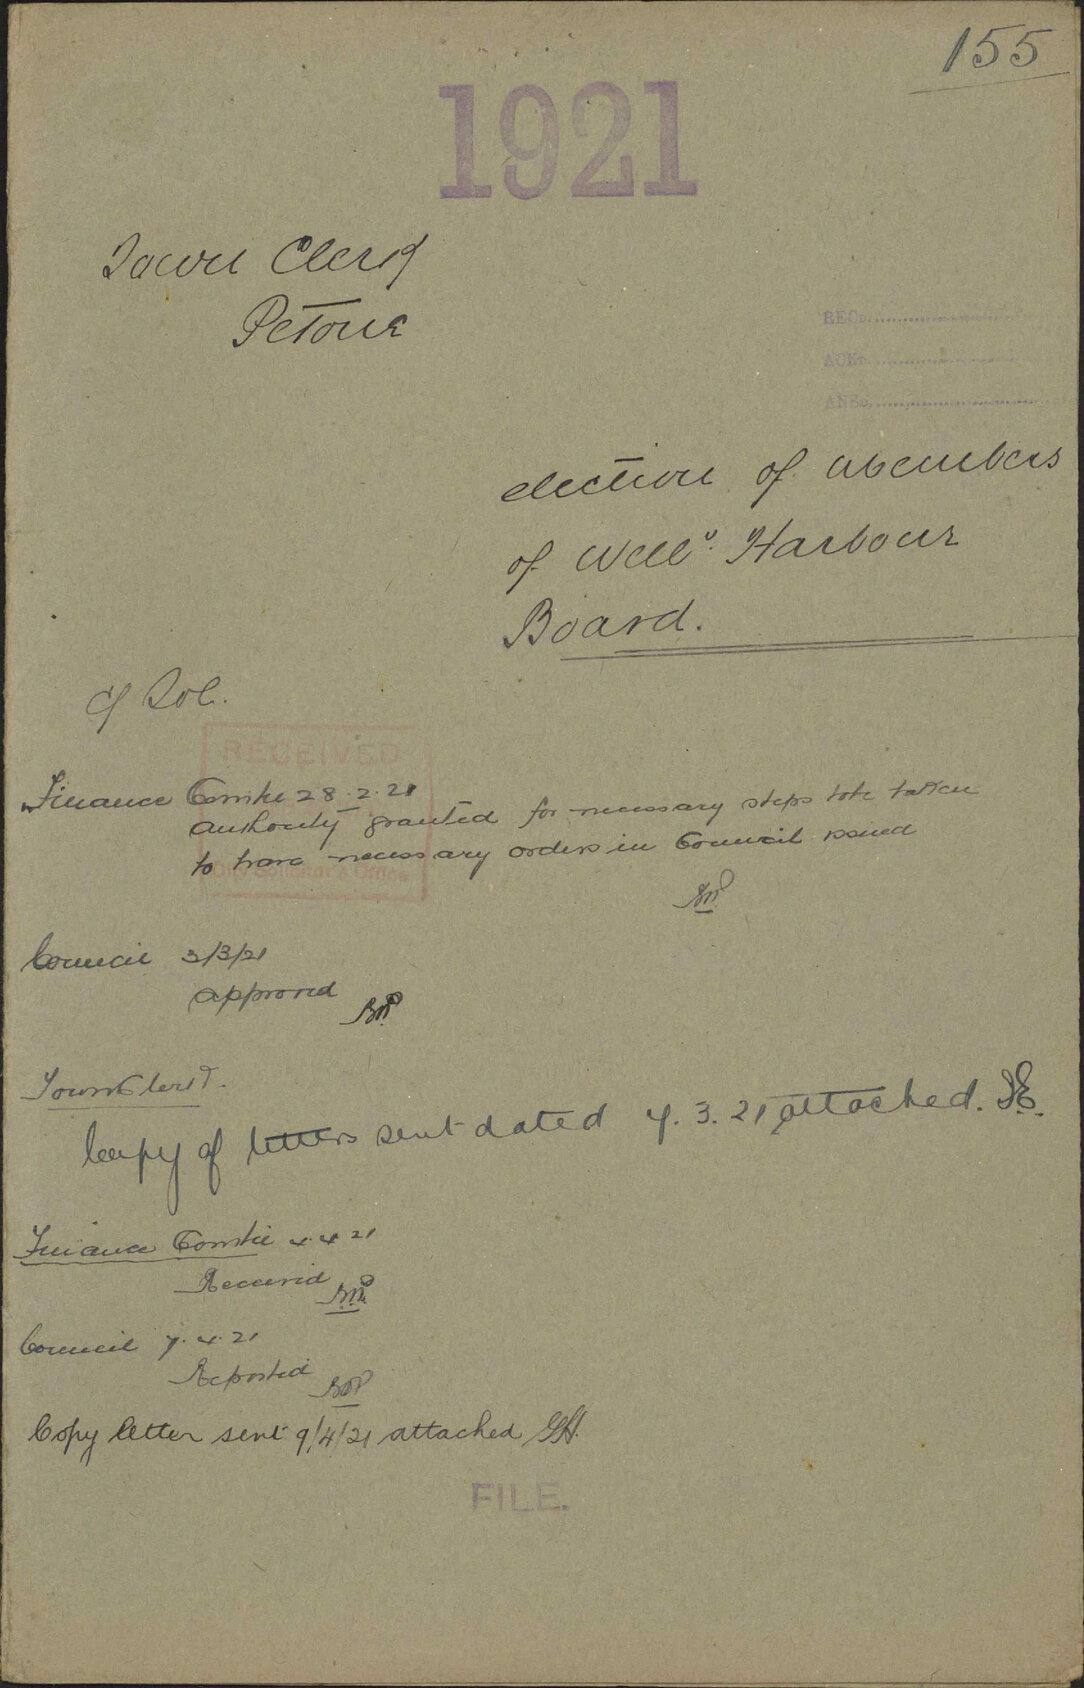 155
1921
Town Clerk
Petone
RECD.
ACKD.
ANSD.
election of members
of Welln. Harbour
Board.
C/ Sol.
RECEIVED
City Solicitor's Office
Finance Comtee 28.2.21
authority granted for necessary steps to be taken
to have necessary orders in Council issued
Council 3/3/21
approved
Town Clerk.
Copy of letters sent dated 4.3.21 attached.
Finance Comtee 4.4.21
Received
Council 7.4.21
Reported
Copy letter sent 9/4/21 attached GH.
FILE.